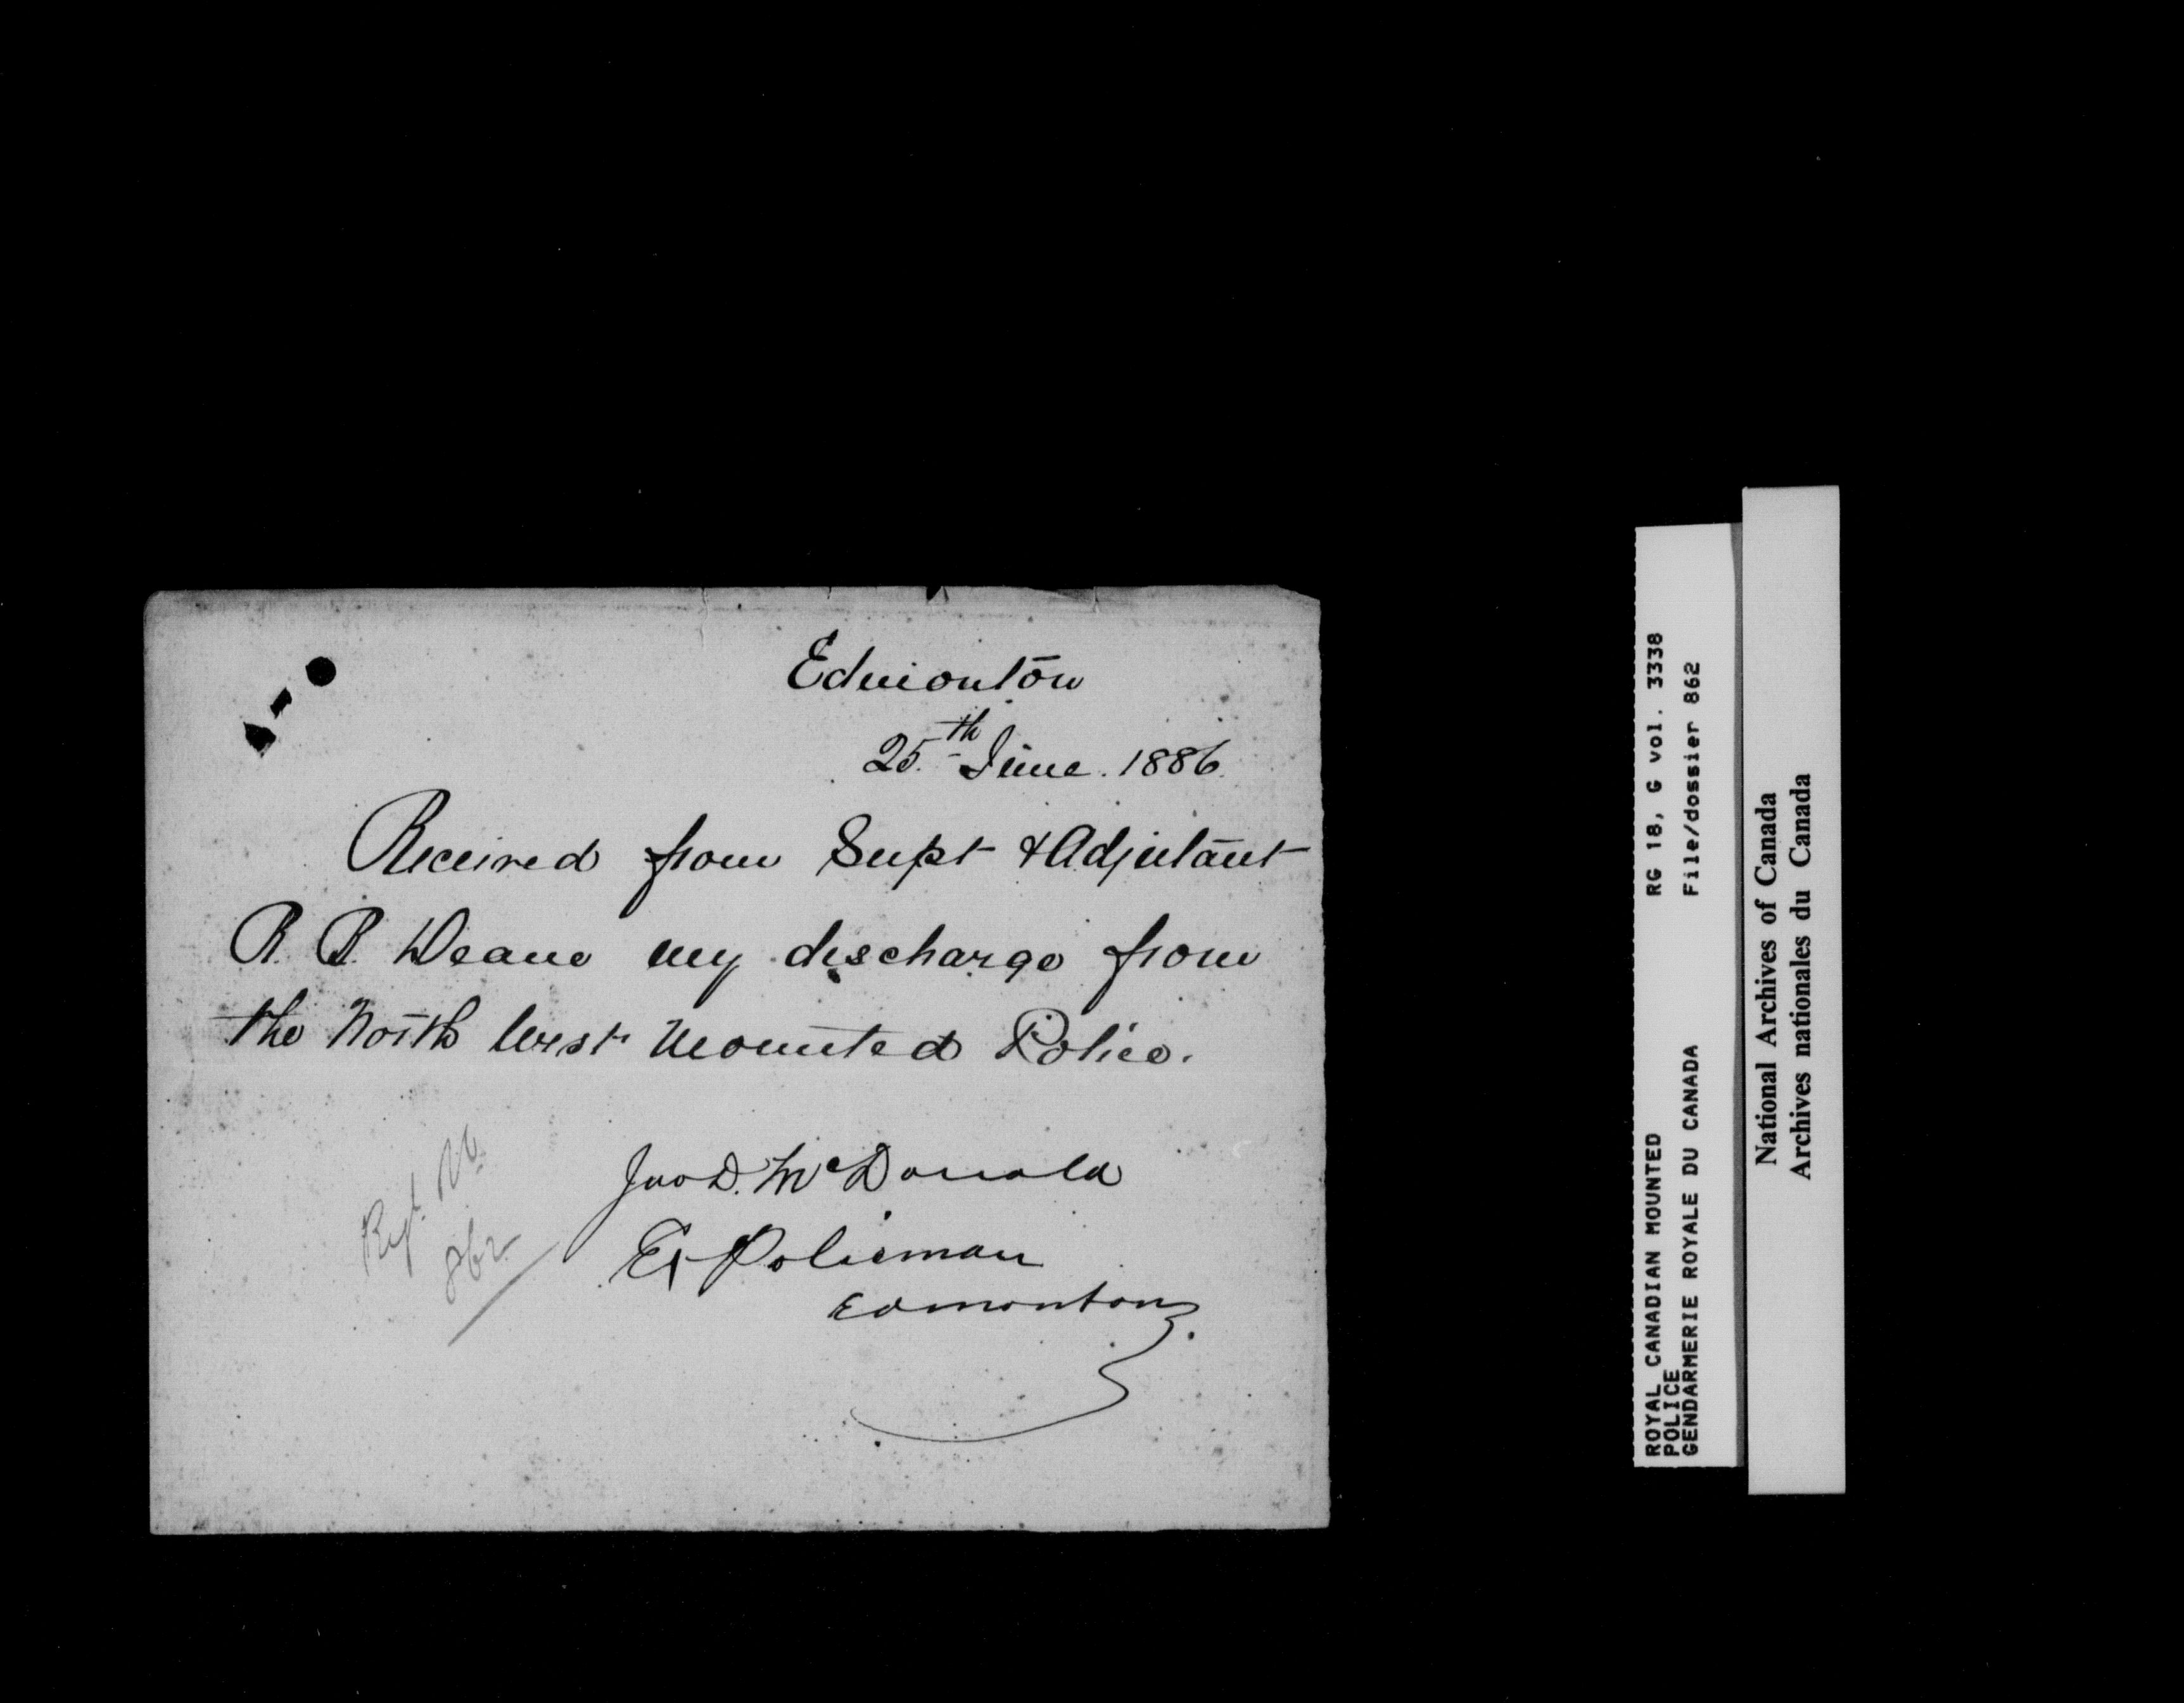 Edmonton
25th June. 1886.
Received from Supt & Adjutant
R. B. Deane my discharge from
the North West Mounted Police.
Jno D. McDonald
Ex Policman
Edmonton.
Regt. No
862
ROYAL CANADIAN MOUNTED RG 18, G vol. 3338
POLICE
GENDARMERIE ROYALE DU CANADA File/dossier 862
National Archives of Canada
Archives nationales du Canada